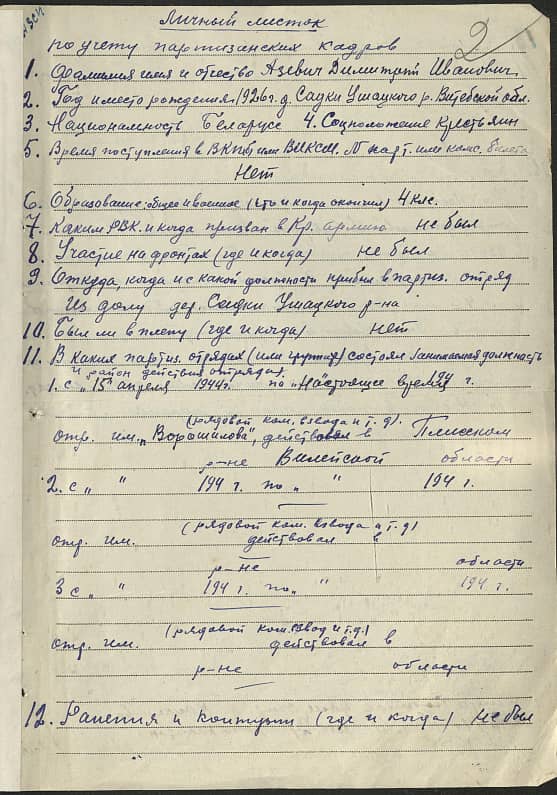 Личный листок
по учету партизанских кадров
2
1. Фамилия имя и отчество Азевич Димитрий Иванович
2. Год и место рождения 1926 г. д. Садки Ушацкого р. Витебской обл.
3. Национальность Беларусс 4. Соцположение Крестьян
5. Время поступления в ВКП(б) или ВЛКСМ. № парт. или комс. билета
Нет
6. Образование: общее и военное (что и когда окончил) 4 клс.
7. Каким РВК. и когда призван в Кр. армию не был
8. Участие на фронтах (где и когда) не был
9. Откуда, когда и с какой должности прибыл в партиз. отряд
Из дому дер. Садки Ушацкого р-на
10. Был ли в плену (где и когда) нет
11. В каких партиз. отрядах (или группах) состоял /занимаемая должность
и район действия отряда).
1. с "15" апреля 1944 г. по "Настоящее время 194 г.
(рядовой ком. взвода и т. д).
отр. им. "Ворошилова", действовал в Плисском
р-не Вилейской области
2. с " " 194 г. по " " 194 г.
(рядовой ком. взвода и т. д)
отр. им. действовал в
р-не области
3 с " " 194 г. по " " 194 г.
(рядовой ком. взвод и т. д.)
отр. им. действовал в
р-не области
12. Ранения и контузии (где и когда) не был